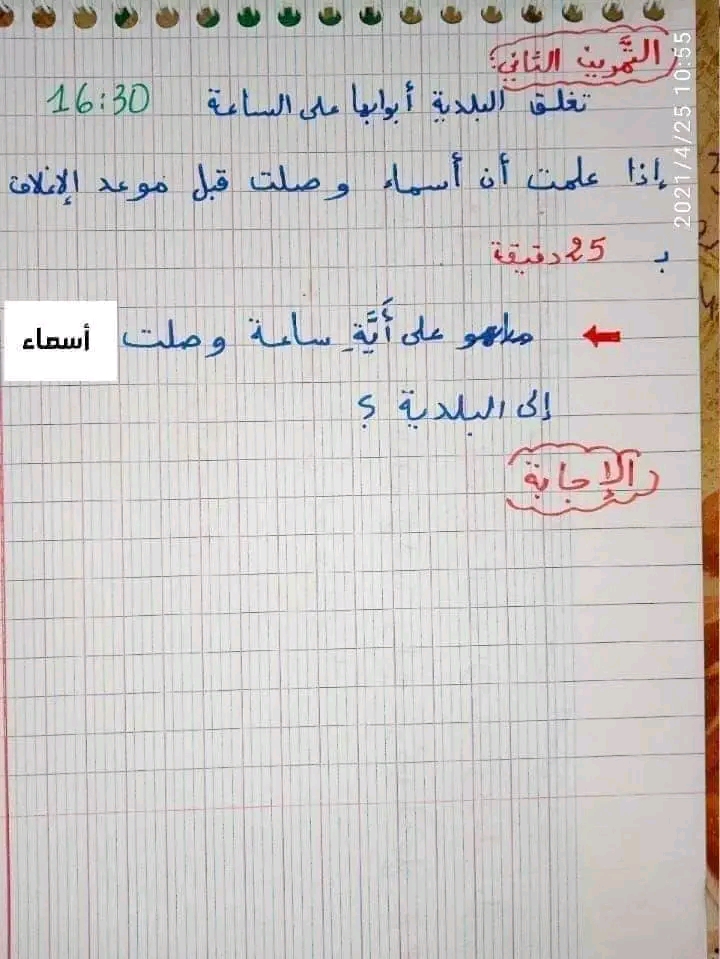 التمرين الثاني:
تغلق البلدية أبوابها على الساعة 16:30
إذا علمت أن أسماء وصلت قبل موعد الإغلاق
بـ 25 دقيقة
على أَيَّةِ ساعة وصلت أسماء
إلى البلدية ؟
الإجابة
2021/4/25 10:55